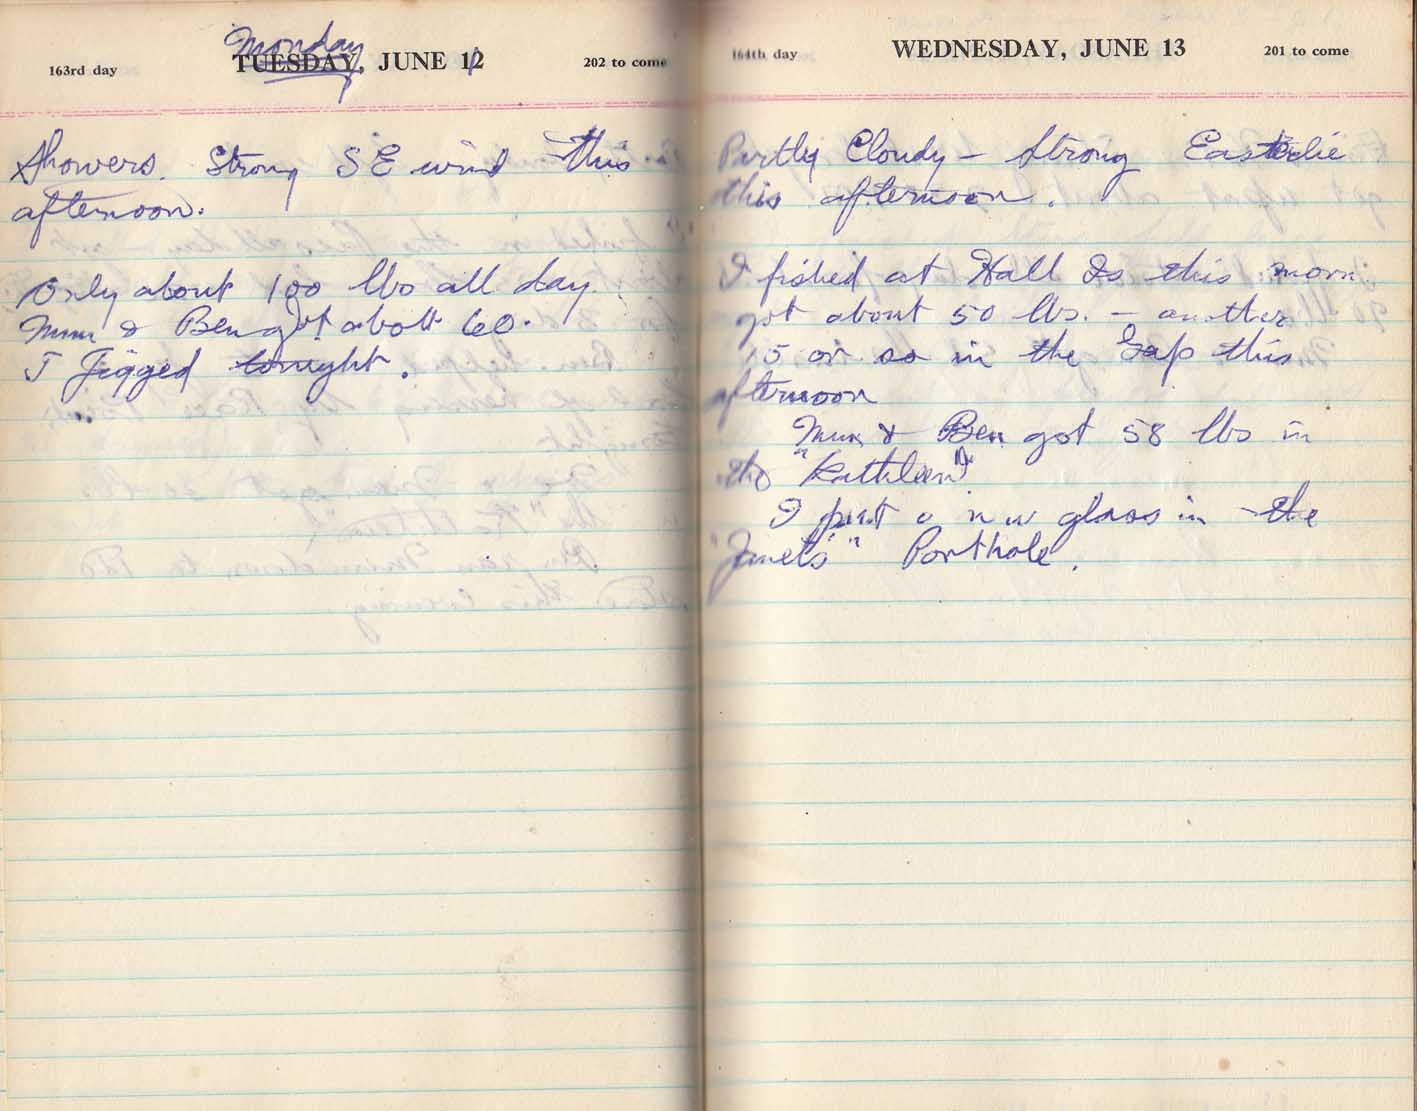 Monday
163rd day TUESDAY, JUNE 12 202 to come
Showers. Strong S E wind this
afternoon.
Only about 100 lbs all day.
Mum & Ben got about 60.
I Jigged tonight.
164th day WEDNESDAY, JUNE 13 201 to come
Partly Cloudy - Strong Easterlie
this afternoon.
I fished at Hall Is this morn.
got about 50 lbs. - another
15 or so in the Gap this
afternoon
Mum & Ben got 58 lbs in
the "Kathleen"
I put a new glass in the
"Janet's" Porthole.